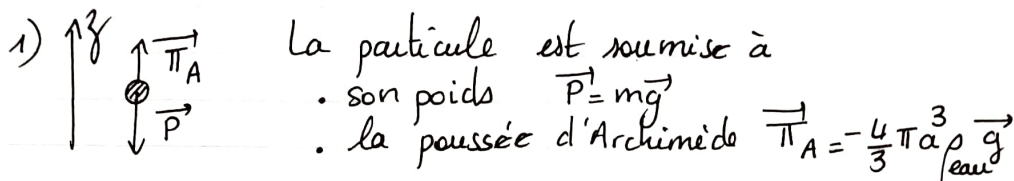 1) z π⃗_A P⃗ La particule est soumise à
• son poids P⃗ = mg⃗
• la poussée d'Archimède π⃗_A = -4/3 πa³ρ_eau g⃗